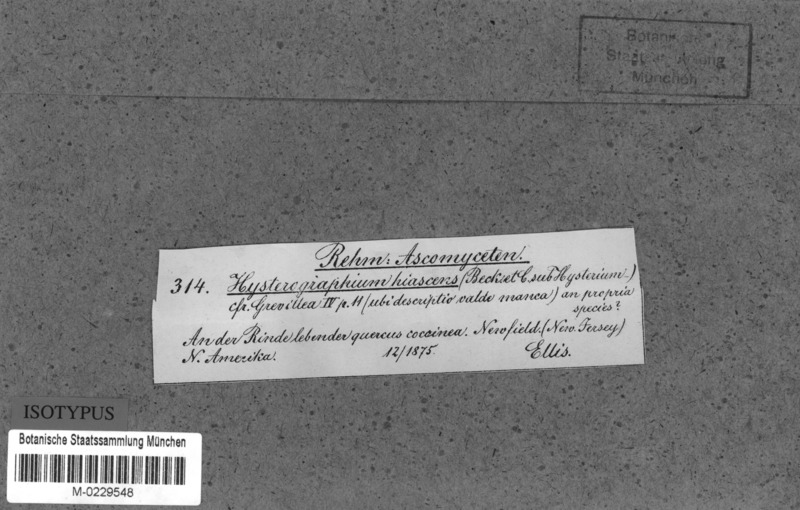 Botanische
Staatssammlung
München
Rehm: Ascomyceten.
314. Hysterographium hiascens (Berk et C. sub Hysterium.)
cfr. Grevillea IV p. 11 (ubi descriptio valde manca) an propria
species?
An der Rinde lebender quercus coccinea. Newfield. (New. Jersey)
N. Amerika. 12/1875. Ellis.
ISOTYPUS
Botanische Staatssammlung München
M-0229548